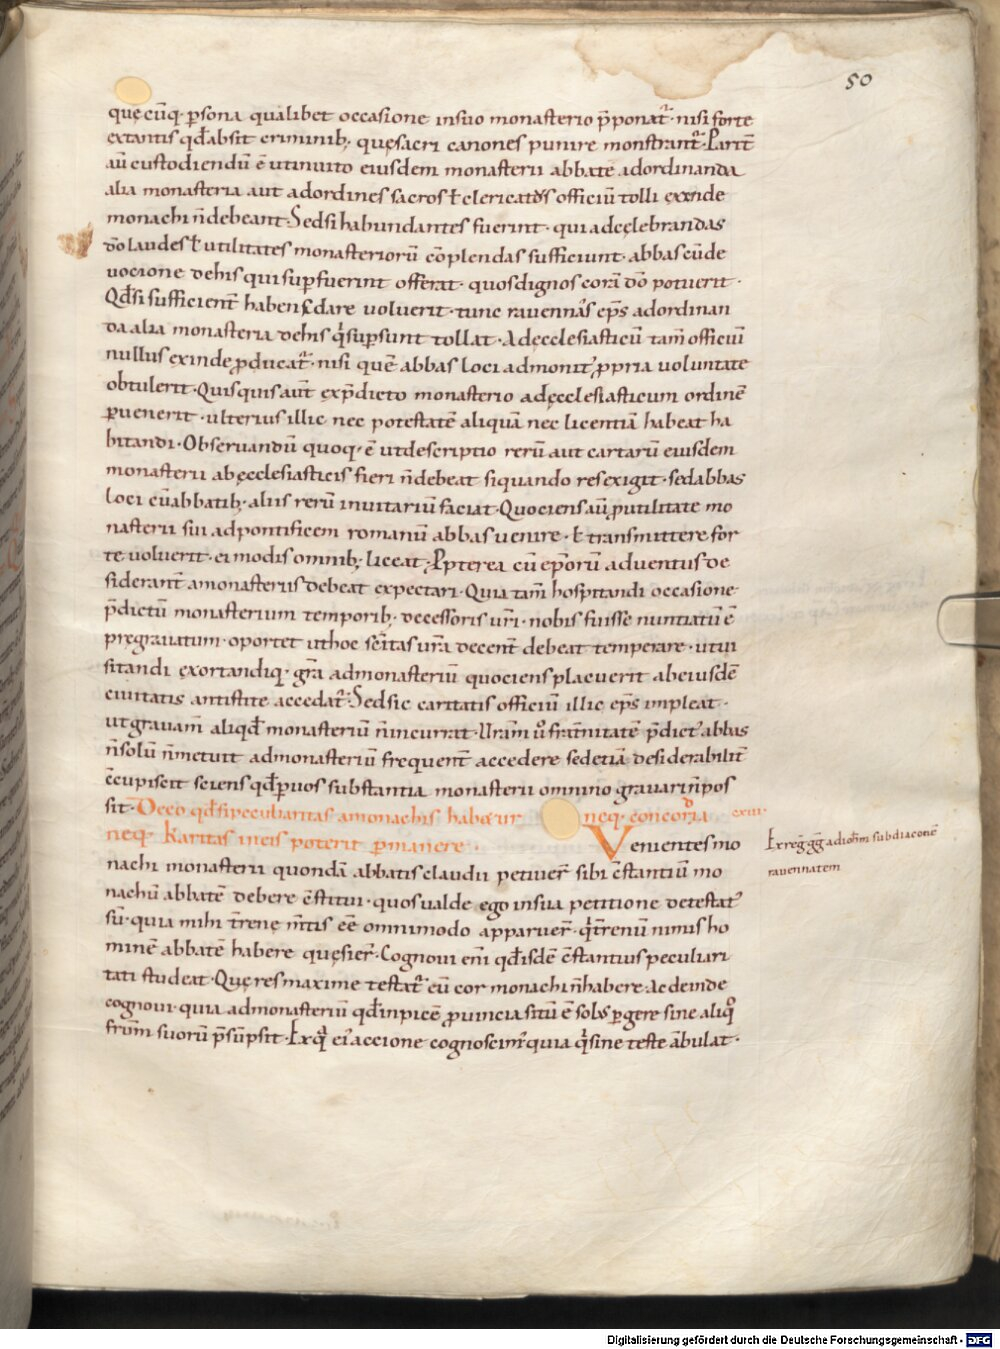 50
quęcūq; psona qualibet occasione insuo monasterio p̄ponat᷑· nisi forte
extantis qd̄ absit criminib; quęsacri canones punire monstrant᷑· Parit̄
aū custodiendū ē utinuito eiusdem monasterii abbate adordinanda
alia monasteria aut adordines sacros ł clericatus officiū tolli exinde
monachi n̄debeant· Sedsi habundantes fuerint· qui adcęlebrandas
dō laudes ł utilitates monasteriorū cōplendas sufficiunt· abbas cūde
uocione dehis qui supfuerint offerat· quosdignos corā dō potuerit·
Qd̄si sufficient̄ habens dare uoluerit· tunc rauennas eps̄ adordinan
da alia monasteria dehis qͥsupsunt tollat· Adęcclesiasticū tam̄ officiū
nullus exinde pducat᷑· nisi quē abbas loci admonit᷒ ppria uoluntate
obtulerit· Quisquis aut̄ exp̄dicto monasterio adęcclesiasticum ordinē
puenerit· ulterius illic nec potestatē aliquā nec licentiā habeat ha
bitandi· Obseruandū quoq; ē utdescriptio rerū aut cartarū eiusdem
monasterii abęcclesiasticis fieri n̄debeat siquando resexigit· sedabbas
loci cūabbatib; aliis rerū inuitariū faciat· Quociens aū putilitate mo
nasterii sui adpontificem romanū abbas uenire· ł transmittere for
te uoluerit· ei modis omnib; liceat· Ppterea cū ep̄orū aduentus de
siderant̄ amonasteriis debeat expectari· Quia tam̄ hospitandi occasione
p̄dictū monasterium temporib; decessoris ur̄i· nobis fuisse nuntiatū ē
pregrauatum· oportet uthoc sc̄itas ur̄a decent̄ debeat temperare· utui
sitandi exortandiq; gr̄a admonasteriū quociens placuerit abeiusdē
ciuitatis antistite accedat᷑· Sedsic caritatis officiū illic eps̄ impleat·
utgrauam̄ aliqd̄ monasteriū n̄incurrat· Ur̄am ů fratnitatē p̄dict᷒ abbas
n̄solū n̄metuit admonasteriū frequent̄ accedere sedetiā desiderabilit̄
c̄cupiscit sciens qd̄puos substantia monasterii omnino grauarin̄pos
sit· De eo qd̄sipeculiaritas amonachis habetur neq; concordia cxiii·
neq; karitas ineis poterit pmanere· Uenientes mo
nachi monasterii quondā abbatis claudii petiuer̄ sibi c̄stantiū mo
nachū abbatē debere c̄stitui· quos ualde ego insua petitione detestat᷒
sū· quia mihi t̄rene m̄tis ēe omnimodo apparuer̄· qͥt̄renū nimis ho
minē abbatē habere quęsier̄· Cognoui en̄i qd̄isdē c̄stantius peculiari
tati studeat· Quęres maxime testat᷑ eū cor monachi n̄habere· Ac deinde
cognoui· quia admonasteriū qd̄inpicē puincia sitū ē solus pgere sine aliqͦ
fr̄um suorū p̄sūpsit· Exqͣ ei᷒ accione cognoscim᷒ quia qͥsine teste ābulat·
Exreg̅ gg̅ adioh̄m subdiaconē
rauennatem
Digitalisierung gefördert durch die Deutsche Forschungsgemeinschaft - DFG